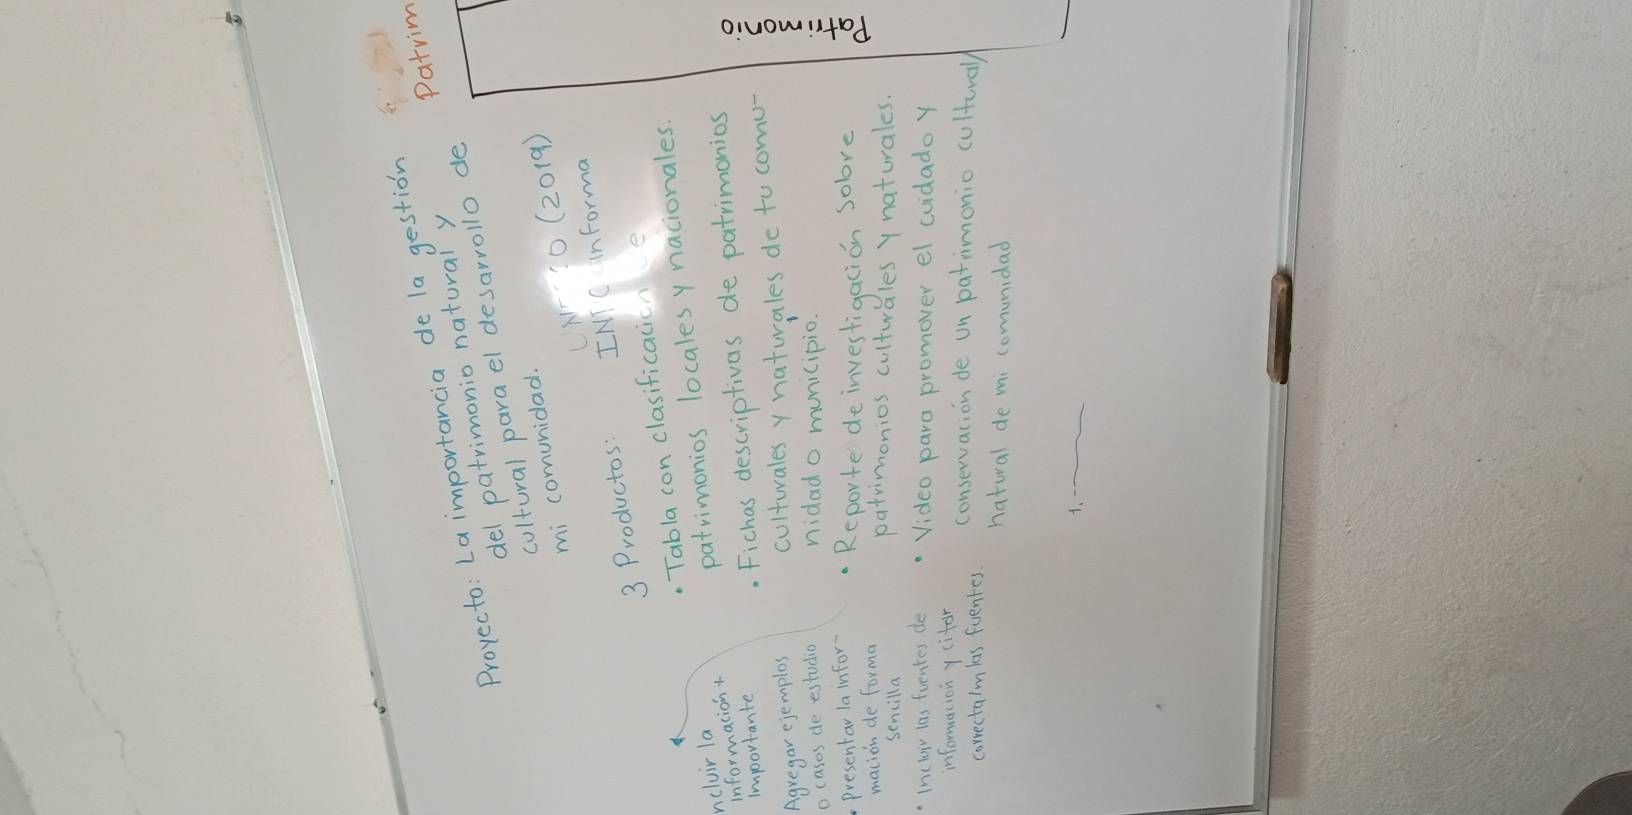 Proyecto: La importancia de la gestión
del patrimonio natural y
cultural para el desarrollo de
mi comunidad.
(2019)
Informa
3 Productos:
• Tabla con clasificación de
patrimonios locales y nacionales.
• Fichas descriptivas de patrimonios
culturales y naturales de tu comu-
nidad o municipio.
• Reporte de investigación sobre
patrimonios culturales y naturales.
• Video para promover el cuidado y
conservación de un patrimonio cultural/
natural de mi comunidad
1.
ncluir la
información +
importante
Agregar ejemplos
o casos de estudio
• Presentar la infor-
mación de forma
sencilla
• Incluir las fuentes de
información y citar
correcta/m las fuentes.
Patrim
Patrimonio